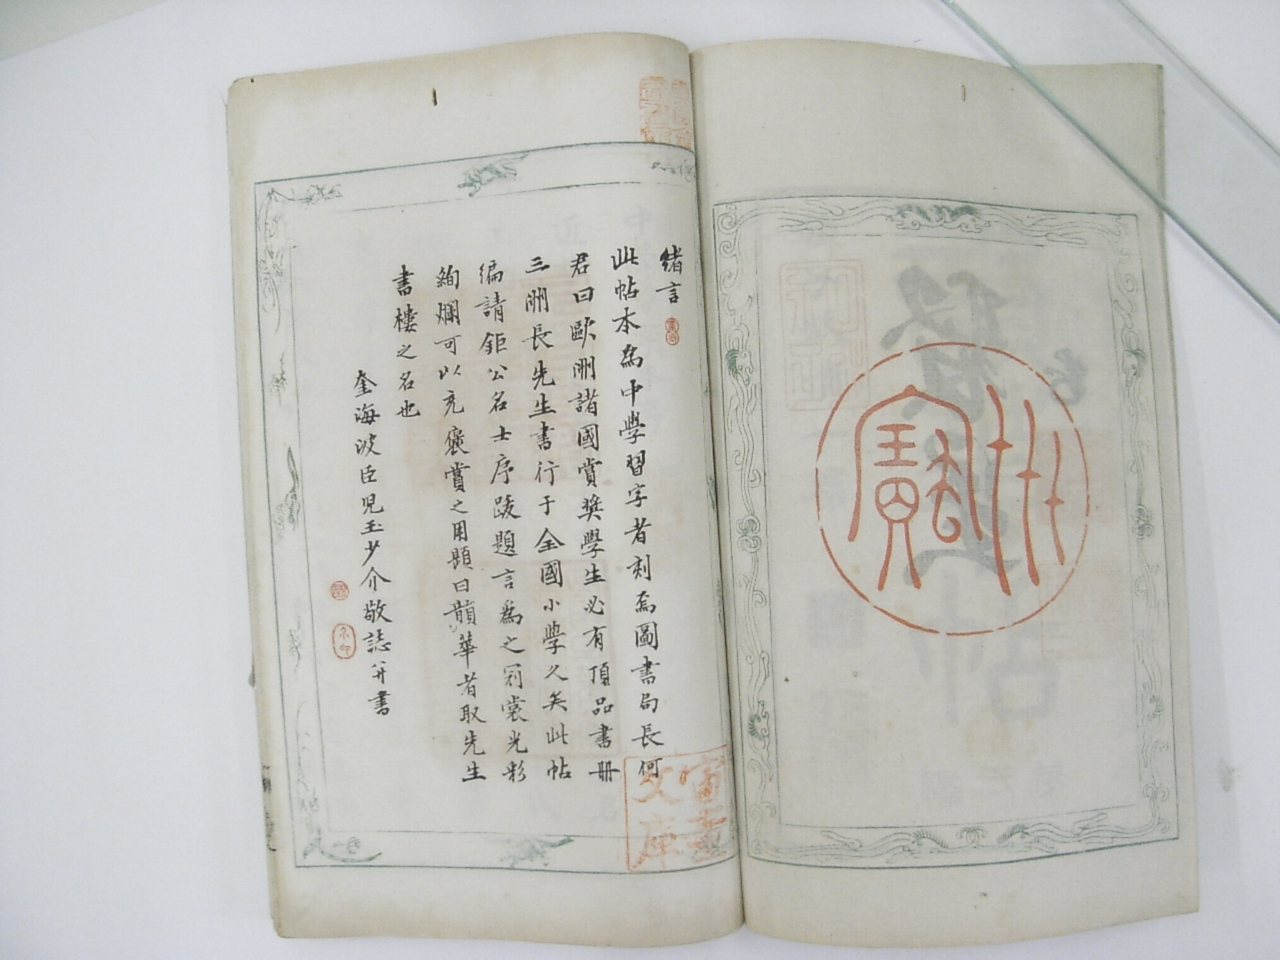 緒言
此帖本為中學習字者刻焉圖書局長何
君曰歐洲諸國賞奬學生必有頂品書冊
三洲長先生書行于全國小學久矣此帖
編請鉅公名士序跋題言為之冠裳光彩
絢爛可以充褒賞之用題曰韻華者取先生
書樓之名也
奎海波臣児玉少介敬誌并書
文庫
寶